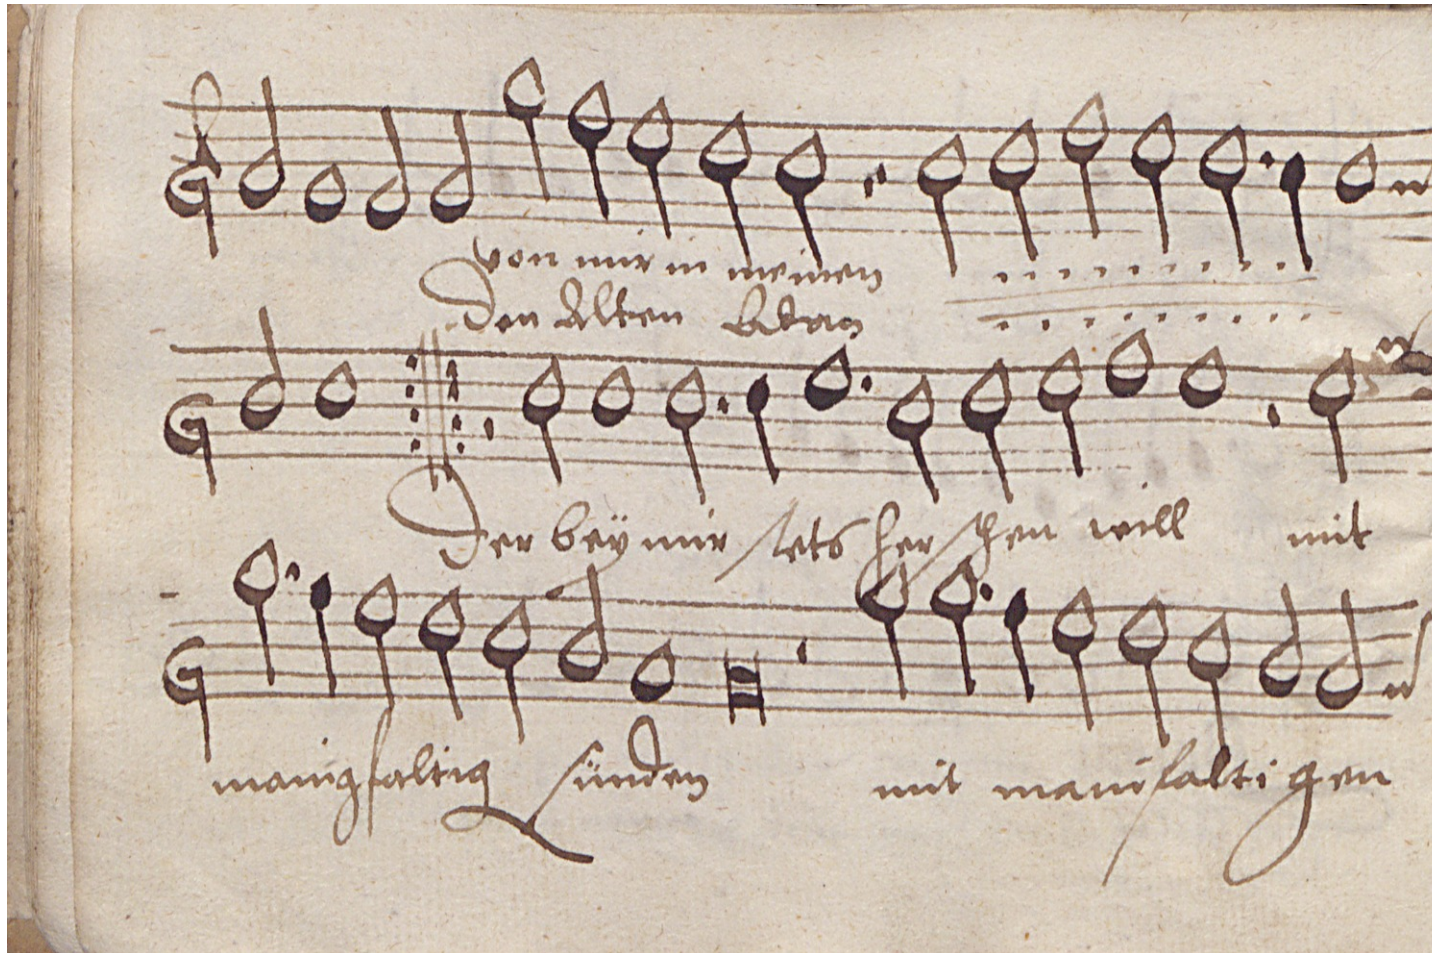 von mir in meinen
Den Alten Adam
Der beÿ mir stets herschen will mit
manigfaltig sünden mit manifaltigen